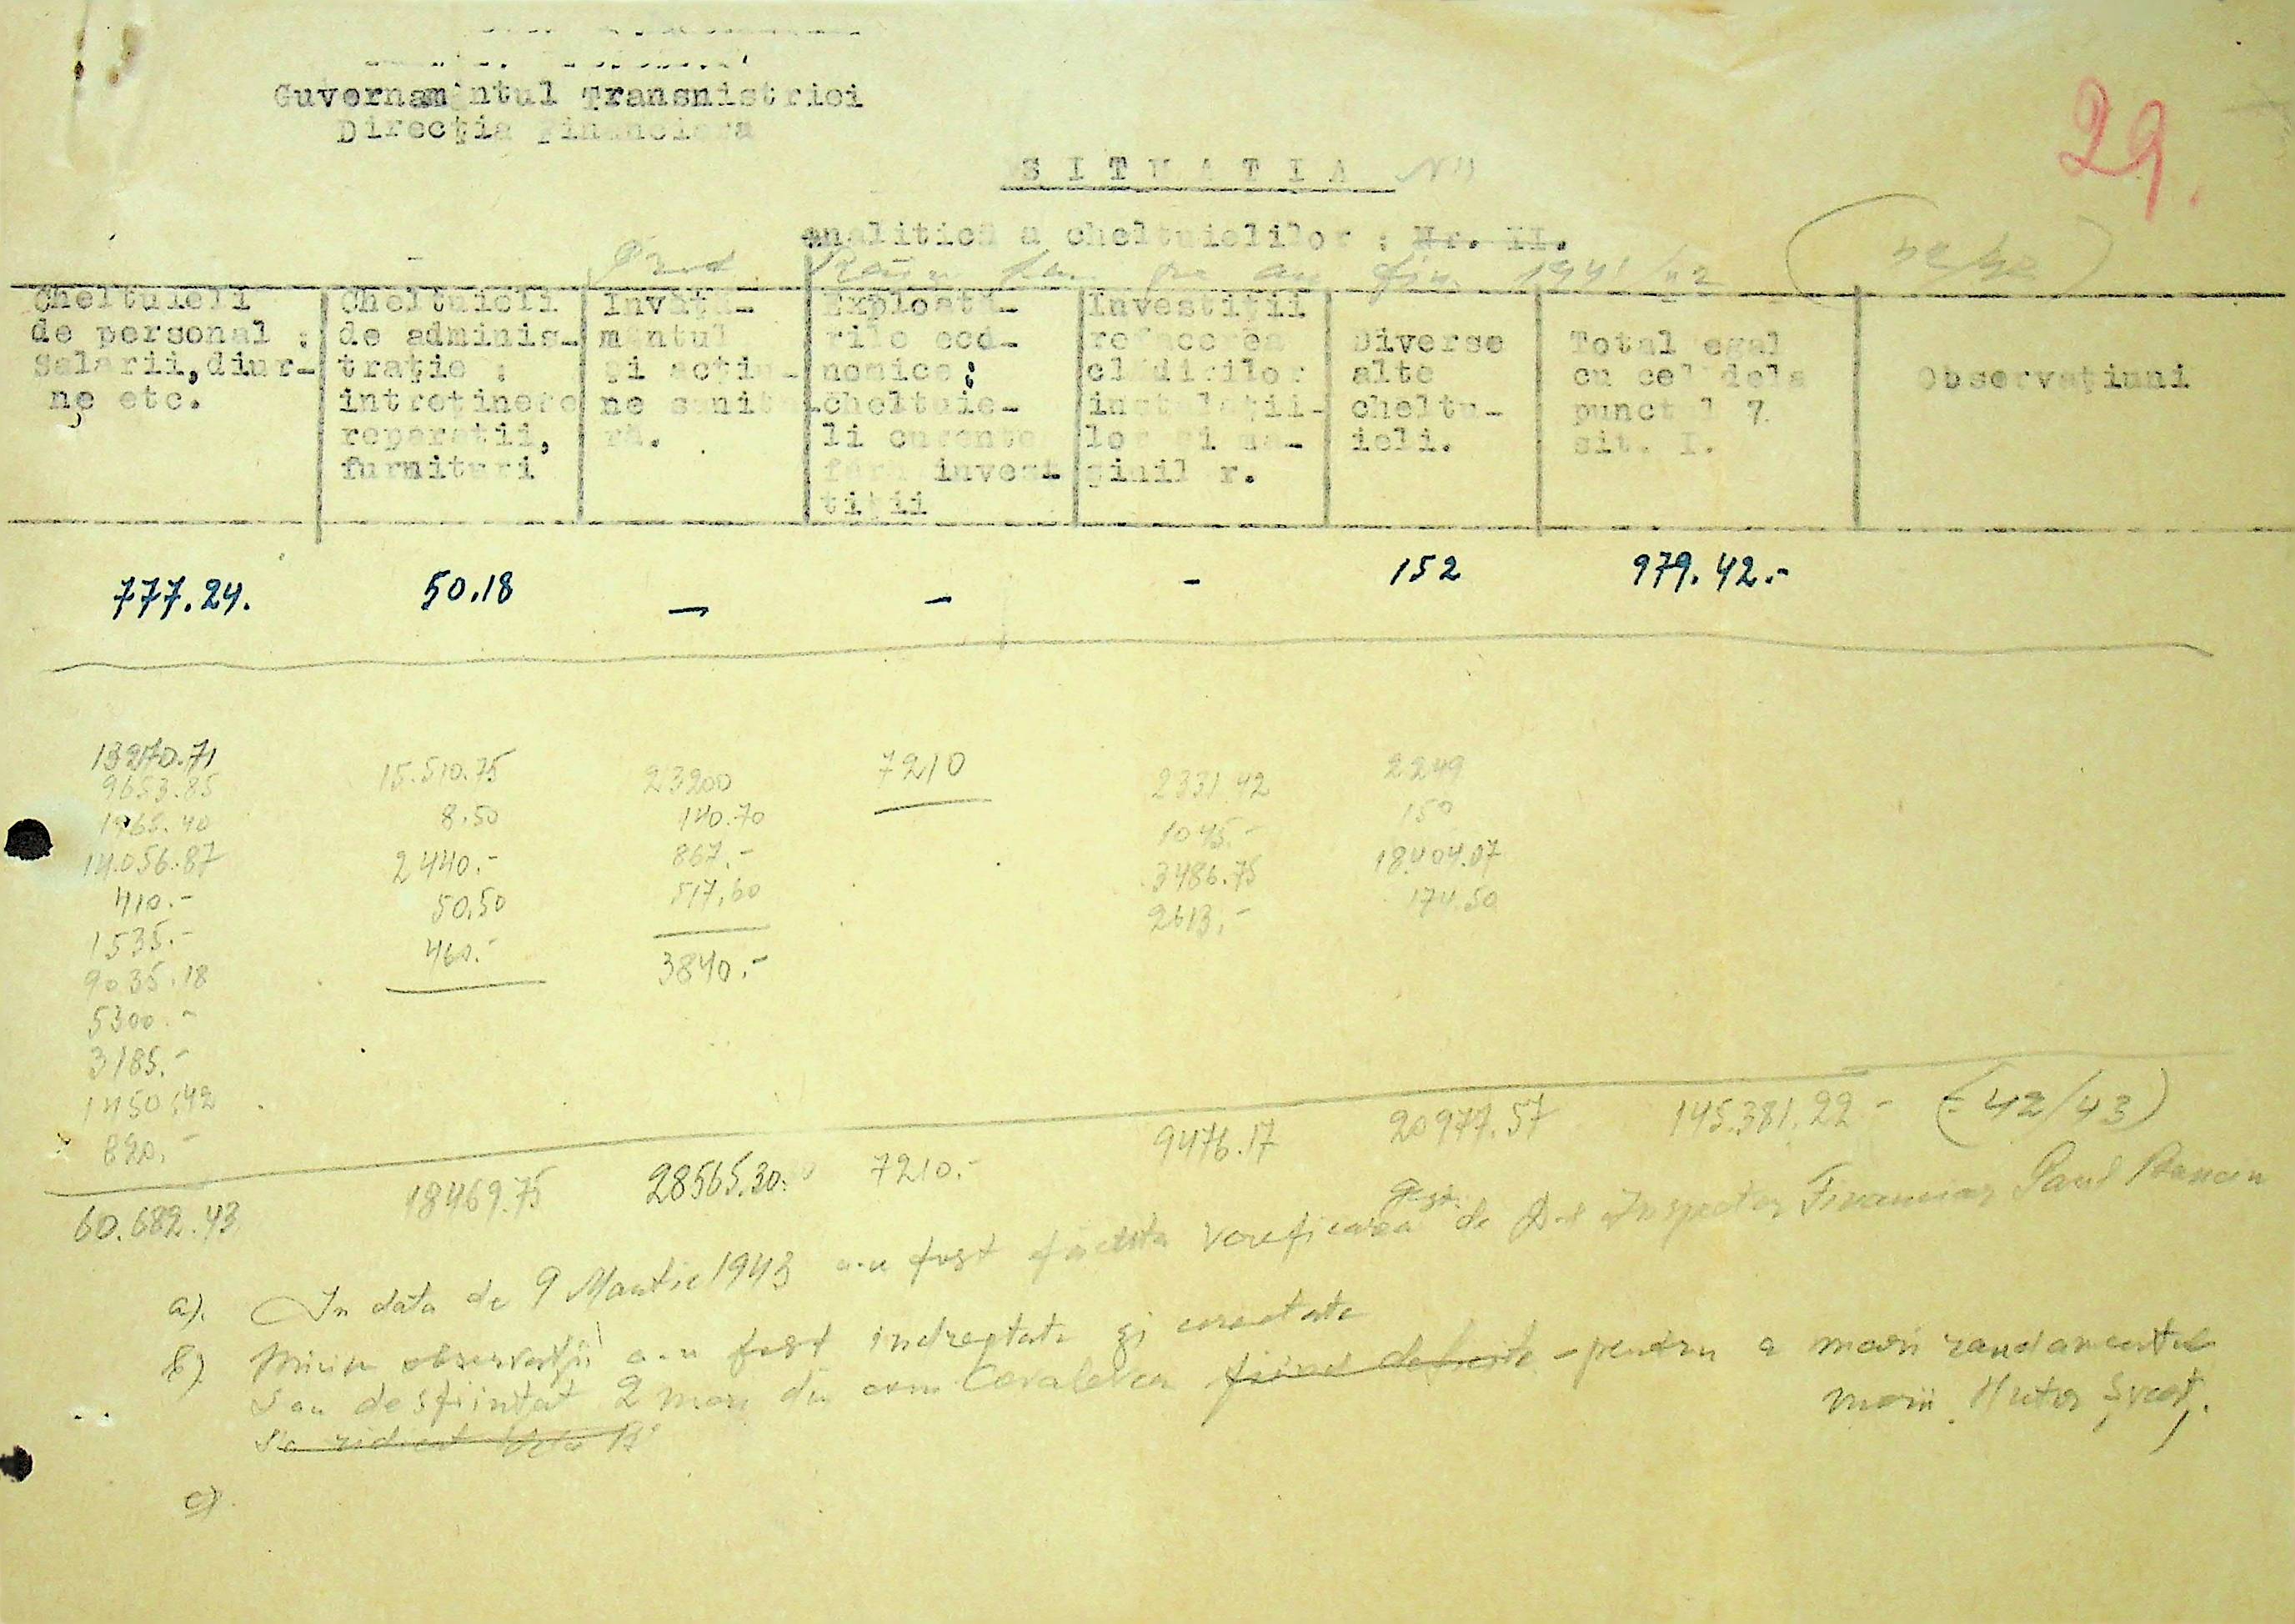 Guvernamântul Transnistriei
Direcţia Financiara
29.
SITUATIA
analitică a cheltuielilor : Nr. II.
pe an fin 1941/42
Cheltuieli de personal : Salarii, diurne etc.
Cheltuieli de administraţie : intreţinere reparatii, furnituri
Invăţămantul şi acţiune sanitară.
Exploatările economice; cheltuieli curente fără investiţii
Investiţii refacerea clădirilor instalaţiilor şi maşinilor.
Diverse alte cheltuieli.
Total egal cu cel dela punctul 7 sit. I.
Observaţiuni
777.24. 50.18 — — - 152 979.42.-
13270.71 15.510.75 23200 7210 2331.42 2249
9653.85 8.50 140.70 1045.- 150
1965.40 2440.- 867.- 3486.75 18.404.07
14.056.87 50.50 517.60 2613.- 174.50
410.- 460.- 3840.-
1535.-
9035.18
5300.-
3185.-
1450.42
820.-
60.682.43 18469.75 28565.30. 7210.- 9476.17 20977.57 145.381.22- (42/43)
a). In data de 9 Martie 1943 a-u fost facuta verificarea de D-l Inspector Financiar Paul
b) observaţii a-u fost indreptate şi corectate
S au desfiintat 2 mori din com Covalevca - pentru a mari randamentul
morii Hutor
Sa ridicat
c).